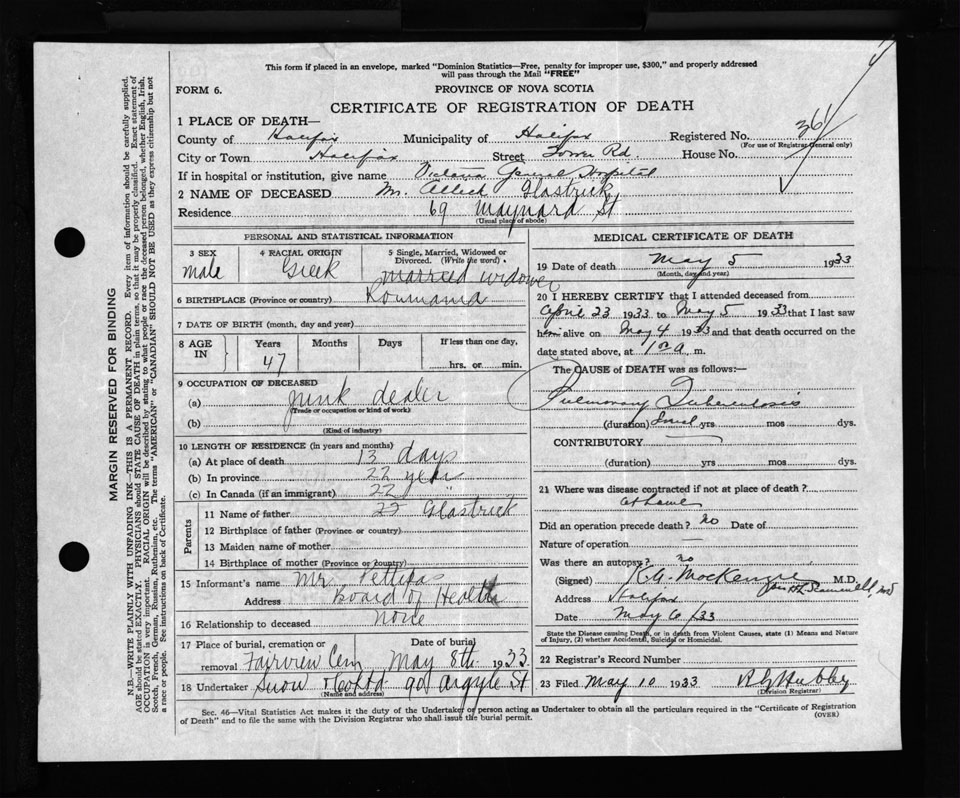 This form if placed in an envelope, marked "Dominion Statistics—Free, penalty for improper use, $300," and properly addressed
will pass through the Mail "FREE"
FORM 6.
PROVINCE OF NOVA SCOTIA
CERTIFICATE OF REGISTRATION OF DEATH
1 PLACE OF DEATH—
County of Halifax Municipality of Halifax Registered No. 361
(For use of Registrar General only)
City or Town Halifax Street Tower Rd. House No.
If in hospital or institution, give name Victoria General Hospital
2 NAME OF DECEASED Mr. Glastrick
Residence 69 Maynard St
(Usual place of abode)
PERSONAL AND STATISTICAL INFORMATION
3 SEX
male
4 RACIAL ORIGIN
Greek
5 Single, Married, Widowed or
Divorced. (Write the word).
married widower
6 BIRTHPLACE (Province or country) Roumania
7 DATE OF BIRTH (month, day and year)
8 AGE IN
Years Months Days If less than one day,
47 hrs. or min.
9 OCCUPATION OF DECEASED
(a) junk dealer
(Trade or occupation or kind of work.)
(b)
(Kind of industry)
10 LENGTH OF RESIDENCE (in years and months)
(a) At place of death 13 days
(b) In province 22 years
(c) In Canada (if an immigrant) 22 "
Parents
11 Name of father 22 Glastrick
12 Birthplace of father (Province or country)
13 Maiden name of mother
14 Birthplace of mother (Province or country)
15 Informant's name Mr. Pettipas
Address Board of Health
16 Relationship to deceased none
17 Place of burial, cremation or
removal Fairview Cem
Date of burial
May 8th 1933
18 Undertaker Snow & Co Ltd 90 Argyle St
(Name and address)
MEDICAL CERTIFICATE OF DEATH
19 Date of death May 5 1933
(Month, day and year)
20 I HEREBY CERTIFY that I attended deceased from
April 23 1933 to May 5 1933 that I last saw
him alive on May 4 1933 and that death occurred on the
date stated above, at m.
The CAUSE of DEATH was as follows:—
Pulmonary Tuberculosis
(duration) yrs mos dys.
CONTRIBUTORY
(duration) yrs mos dys.
21 Where was disease contracted if not at place of death?
at home
Did an operation precede death? no Date of
Nature of operation —
Was there an autopsy? no
(Signed) K.G. MacKenzie M.D.
Address Halifax
Date May 6/33
State the Disease causing Death, or in death from Violent Causes, state (1) Means and Nature
of Injury, (2) whether Accidental, Suicidal or Homicidal.
22 Registrar's Record Number
23 Filed May 10 1933
(Division Registrar)
Sec. 46—Vital Statistics Act makes it the duty of the Undertaker or person acting as Undertaker to obtain all the particulars required in the "Certificate of Registration
of Death" and to file the same with the Division Registrar who shall issue the burial permit.
(OVER)
MARGIN RESERVED FOR BINDING
N.B.—WRITE PLAINLY WITH UNFADING INK—THIS IS A PERMANENT RECORD. Every item of information should be carefully supplied.
AGE should be stated EXACTLY. PHYSICIANS should STATE CAUSE OF DEATH in plain terms, so that it may be properly classified. Exact statement of
OCCUPATION is very important. RACIAL ORIGIN will be described by stating to what people or race the deceased person belonged, whether English, Irish,
Scotch, French, German, Russian, Ruthenian, etc. The terms "AMERICAN" or "CANADIAN" SHOULD NOT BE USED as they express citizenship but not
a race or people. See instructions on back of Certificate.